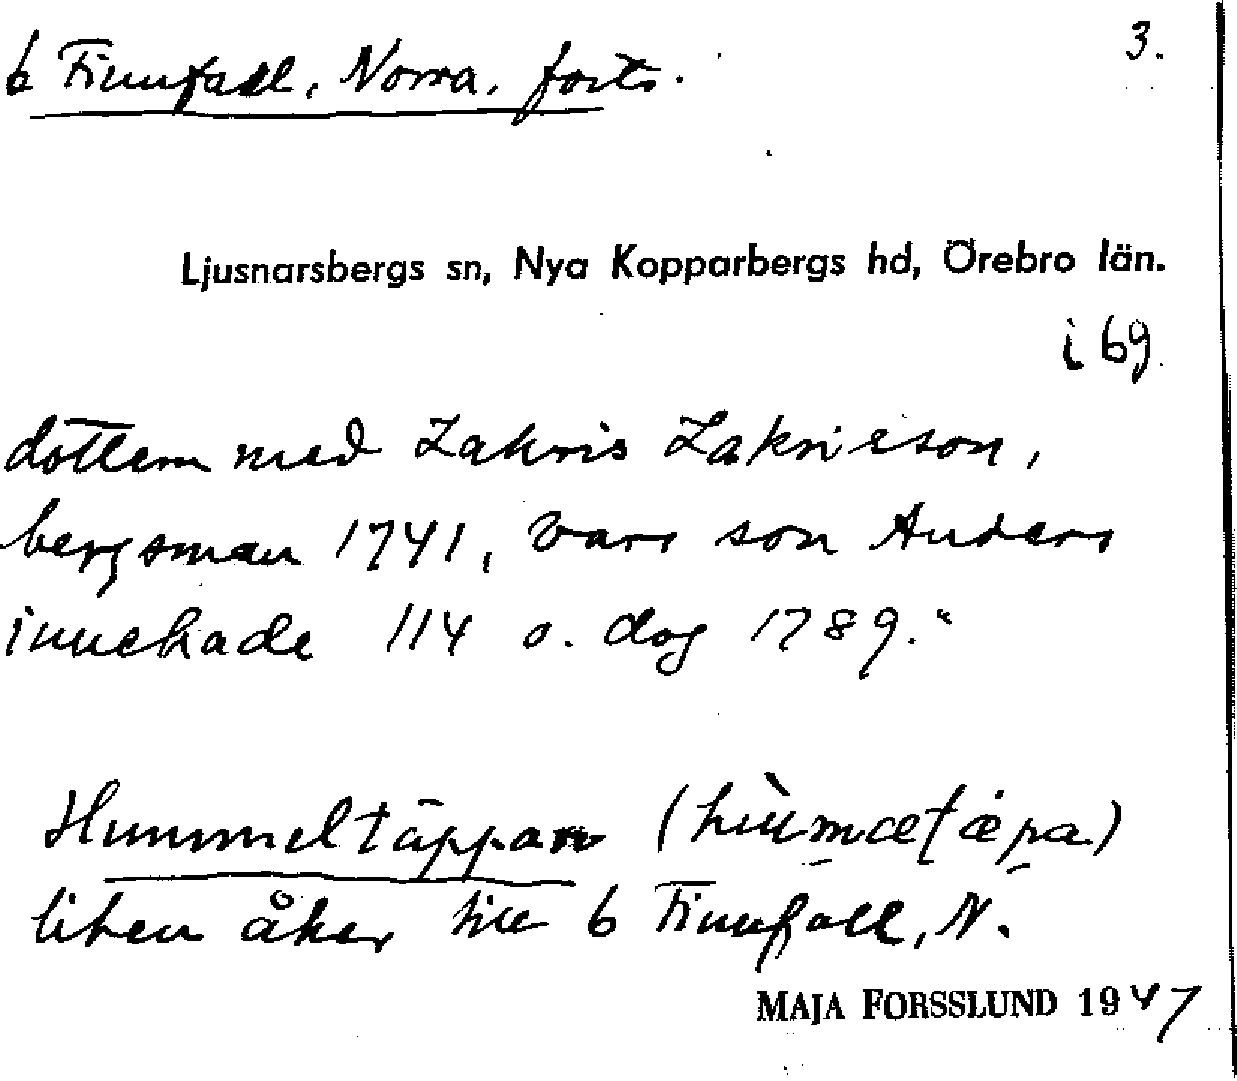 3.
6 Finnfall, Norra, forts.
Ljusnarsbergs sn, Nya Kopparbergs hd, Örebro län.
i 69
dottern med Zakris Zakrisson,
bergsman 1741, vars son Anders
innehade 114 o. dog 1789."
Hummeltäppan
liten åker till 6 Finnfall, N.
MAJA FORSSLUND 1947